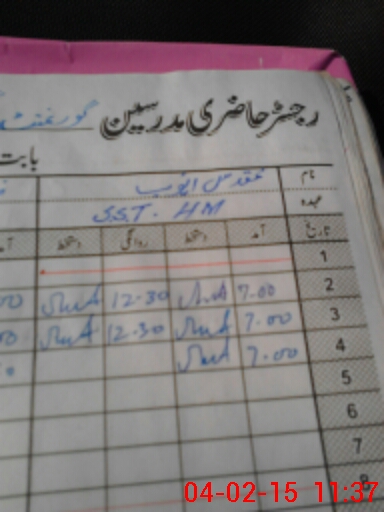 رجسٹر حاضری مدرسین گورنمنٹ
بابت
نام مقدس ایوب
عہدہ S.S.T. HM
تاریخ آمد دستخط روانگی دستخط
1
2 7.00 12.30
3 7.00 12.30
4 7.00
5
6
7
8
04-02-15 11:37